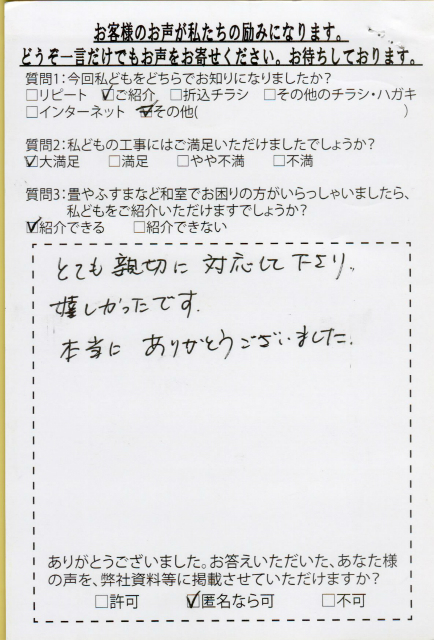 お客様のお声が私たちの励みになります。
どうぞ一言だけでもお声をお寄せください。お待ちしております。
質問1:今回私どもをどちらでお知りになりましたか?
□リピート ☑ご紹介 □折込チラシ □その他のチラシ・ハガキ
□インターネット ☑その他( )
質問2:私どもの工事にはご満足いただけましたでしょうか?
☑大満足 □満足 □やや不満 □不満
質問3:畳やふすまなど和室でお困りの方がいらっしゃいましたら、
私どもをご紹介いただけますでしょうか?
☑紹介できる □紹介できない
とても親切に対応して下さり、
嬉しかったです。
本当に ありがとうございました。
ありがとうございました。お答えいただいた、あなた様
の声を、弊社資料等に掲載させていただけますか?
□許可 ☑匿名なら可 □不可